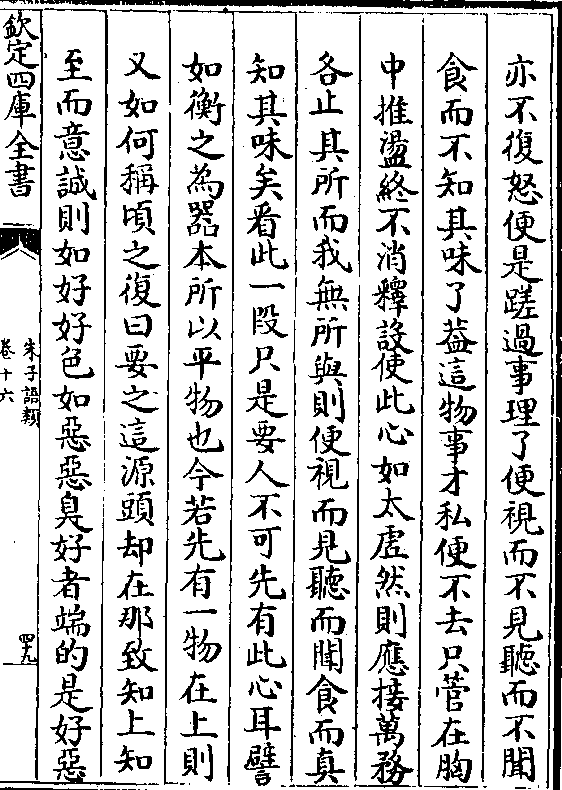 亦不復怒便是蹉過事理了便視而不見聽而不聞
食而不知其味了葢這物事才私便不去只管在胸
中推盪終不消釋設使此心如太虛然則應接萬務
各止其所而我無所與則便視而見聽而聞食而真
知其味矣看此一段只是要人不可先有此心耳譬
如衡之為器本所以平物也今若先有一物在上則
又如何稱頃之復曰要之這源頭却在那致知上知
至而意誠則如好好色如惡惡臭好者端的是好惡
欽定四庫全書
朱子語類
卷十六
四九